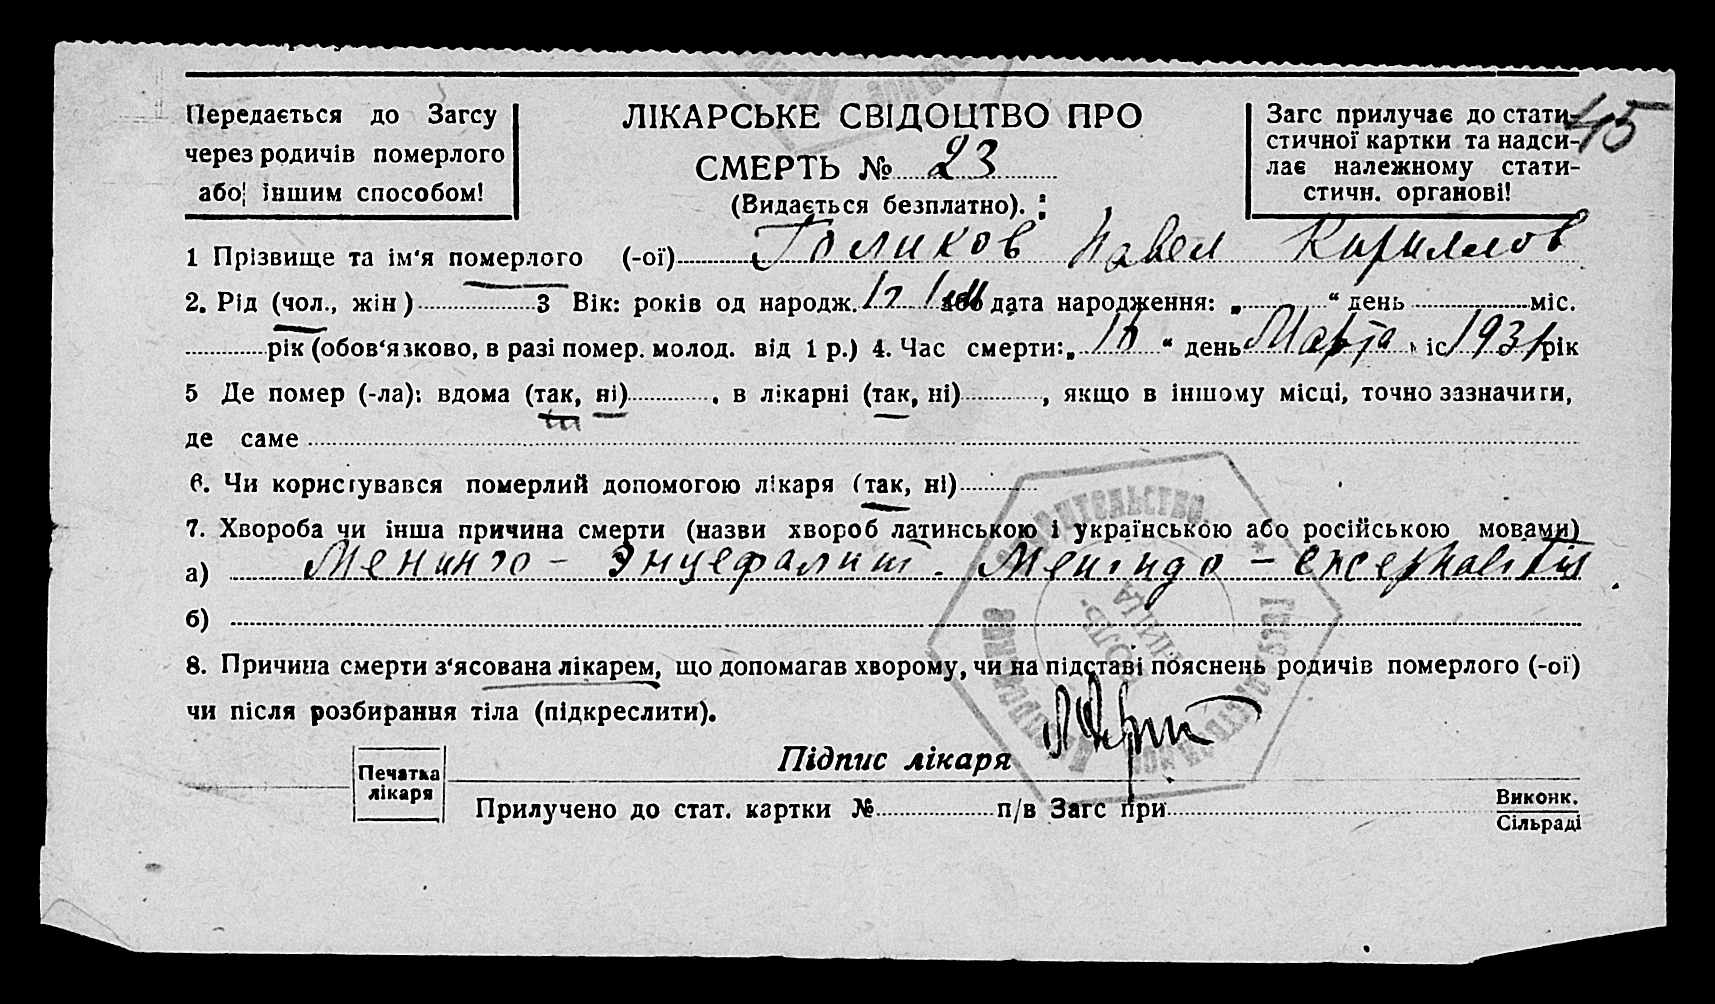 45
Передається до Загсу
через родичів померлого
або іншим способом!
ЛІКАРСЬКЕ СВІДОЦТВО ПРО
СМЕРТЬ № 23
(Видається безплатно).
Загс прилучає до стати-
стичної картки та надси-
лає належному стати-
стичн. органові!
1 Прізвище та ім'я померлого (-ої) Голиков Павел Кириллов
2. Рід (чол., жін) 3 Вік: років од народж. або дата народження: „ “ день міс.
рік (обов'язково, в разі помер. молод. від 1 р.) 4. Час смерти: „ “ день Марта міс 1931 рік
5 Де помер (-ла): вдома (так, ні) , в лікарні (так, ні) , якщо в іншому місці, точно зазначити,
де саме
6. Чи користувався померлий допомогою лікаря (так, ні)
7. Хвороба чи інша причина смерти (назви хвороб латинською і українською або російською мовами)
а) Менинго-Энцефалит. Meningo-encephalitis
б)
8. Причина смерти з'ясована лікарем, що допомагав хворому, чи на підставі пояснень родичів померлого (-ої)
чи після розбирання тіла (підкреслити).
Підпис лікаря
Печатка
лікаря
Прилучено до стат. картки № п/в Загс при
Виконк.
Сільраді